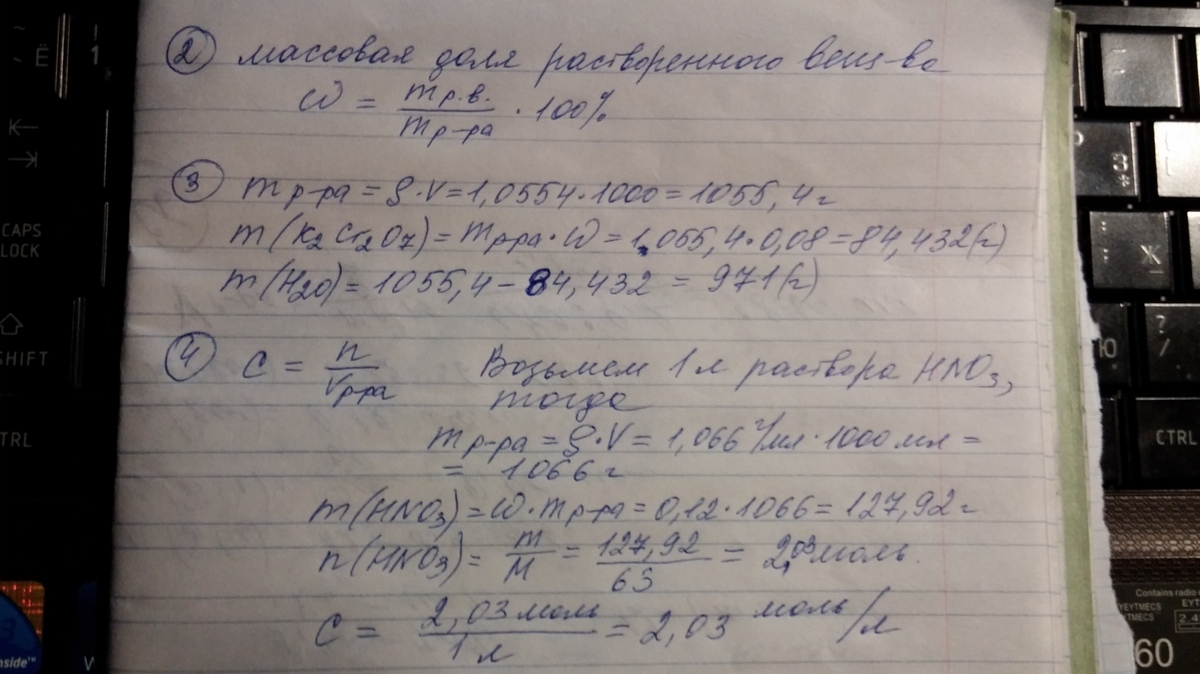 ② массовая доля растворенного вещ-ва
ω = mр.в. / mр-ра · 100%
③ mр-ра = ρ·V = 1,0554·1000 = 1055,4 г
m(K₂Cr₂O₇) = mр-ра·ω = 1055,4·0,08 = 84,432(г)
m(H₂O) = 1055,4 – 84,432 = 971(г)
④ C = n / Vр-ра Возьмем 1 л раствора HNO₃,
тогда
mр-ра = ρ·V = 1,066 г/мл·1000 мл =
= 1066 г
m(HNO₃) = ω·mр-ра = 0,12·1066 = 127,92 г
n(HNO₃) = m / M = 127,92 / 63 = 2,03 моль.
C = 2,03 моль / 1 л = 2,03 моль/л
~
Ё
!
1
CAPS
LOCK
SHIFT
CTRL
nside™
V
P
3
Х
?
/
Ю
CTRL
Contains radio
EYEYTMECS
EYTMECS
EY
2.4
60